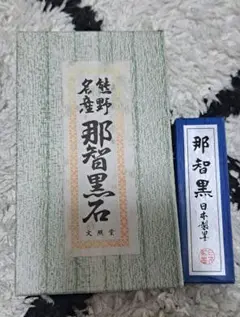 熊野
名産
那智黒石
文照堂
那智黒
日本製墨